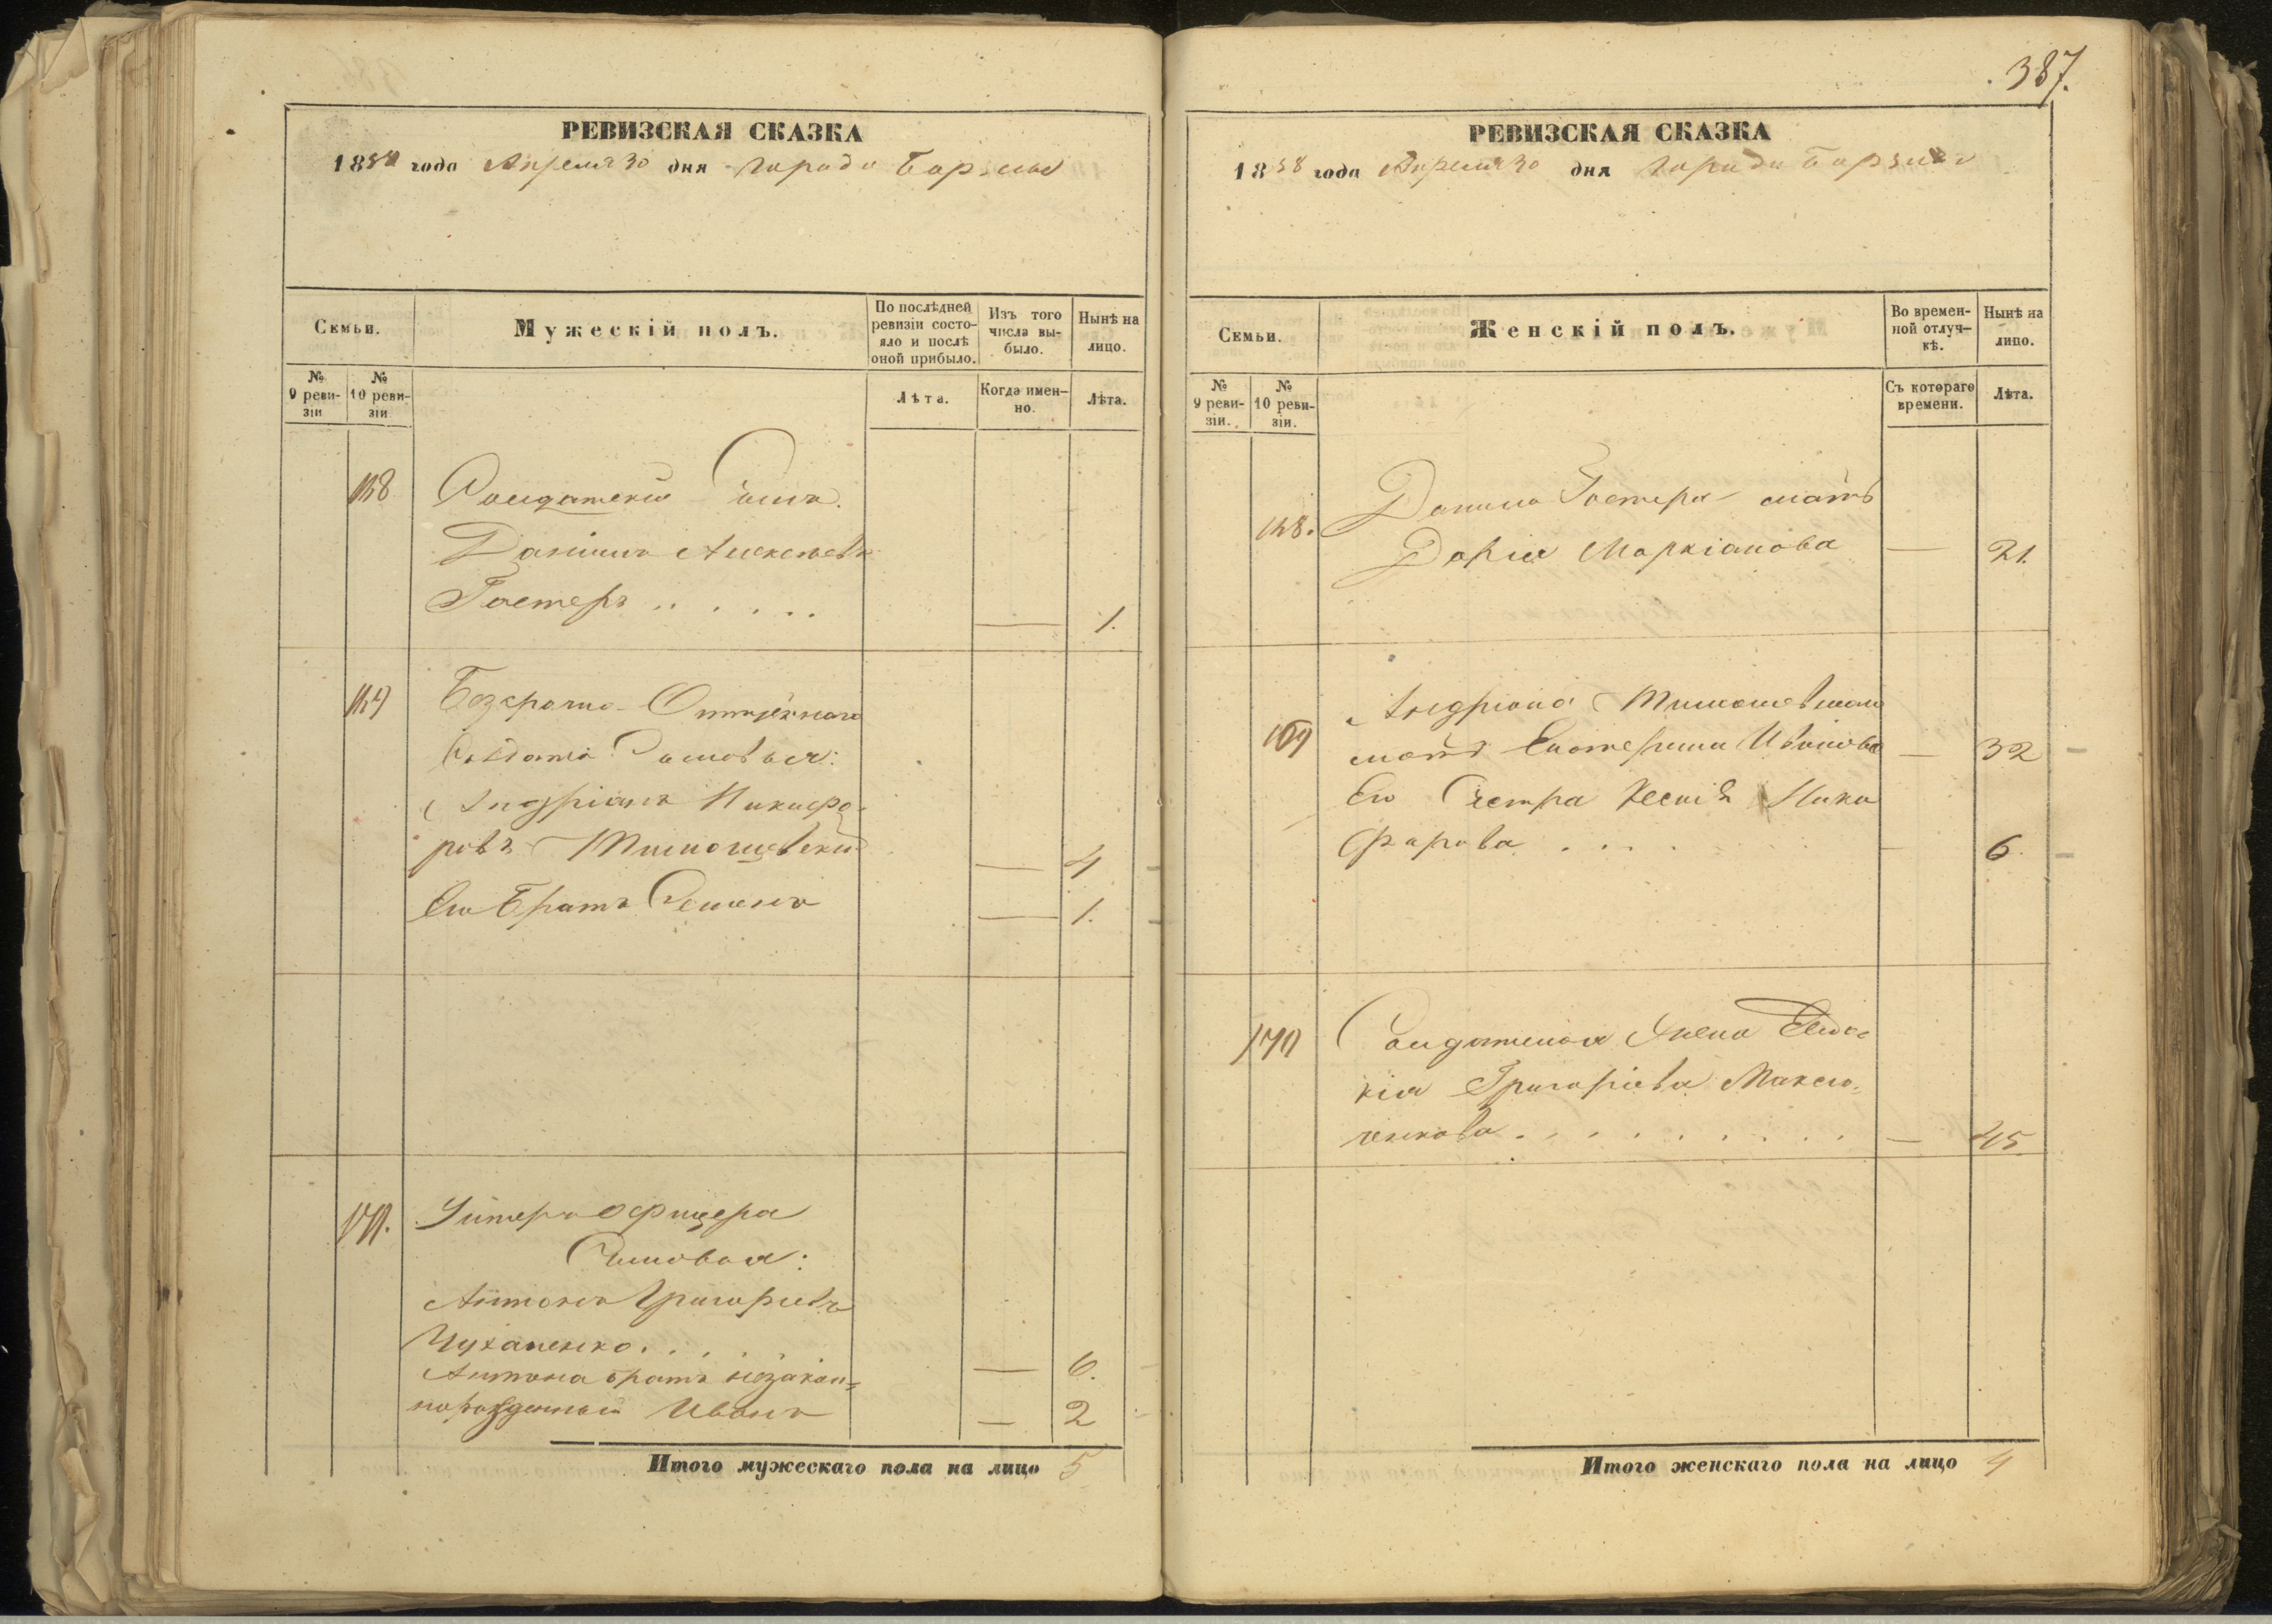 РЕВИЗСКАЯ СКАЗКА
1858 года Апреля 30 дня города Борзны
Семьи.
Мужескій полъ.
По послѣдней
ревизіи состо-
яло и послѣ
оной прибыло.
Изъ того
числа вы-
было.
Нынѣ на
лицо.
№
9 реви-
зіи
№
10 реви-
зіи
Лѣта.
Когда имен-
но.
Лѣта.
168
Солдатскій Сынъ.
Даніилъ Алексѣевъ
Гостеръ . . . . . .
— 1.
169
Безсрочно-Отпускнаго
Солдата Сыновья:
Андріанъ Никифо-
ровъ Тимошевскій
— 4
Его Братъ Семенъ
— 1.
171.
Унтеръ Офицера
Сыновья:
Антонъ Григорьевъ
Чуханенко. . . . .
— 6.
Антона братъ незакон-
норожденный Иванъ
— 2
Итого мужескаго пола на лицо 5
387.
РЕВИЗСКАЯ СКАЗКА
1858 года Апреля 30 дня города Борзны
Семьи.
Женскій полъ.
Во времен-
ной отлуч-
кѣ.
Нынѣ на
лицо.
№
9 реви-
зіи.
№
10 реви-
зіи.
Съ котораго
времени.
Лѣта.
168.
Данила Гостера мать
Дарія Маркіанова — 21.
169
Андріана Тимошевскаго
мать Екатерина Иванова — 32
Его Сестра Ксенія Ники
форова . . . . — 6.
170
Солдатская Жена Евдо-
кія Григоріева Максю-
ченкова . . . . . . . . . — 45.
Итого женскаго пола на лицо 4